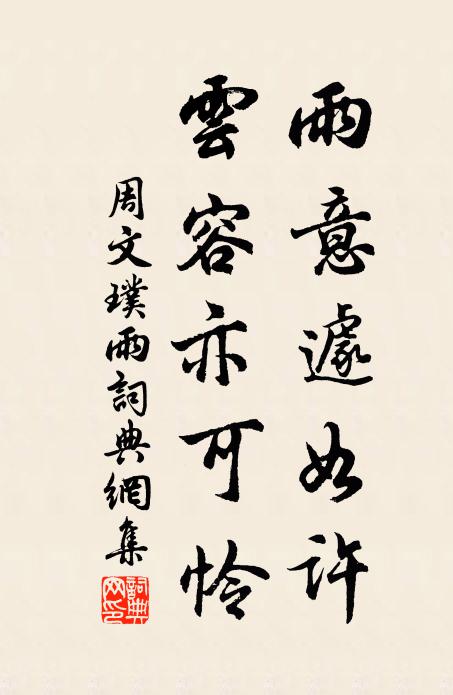 雨意遽如許
雲容亦可怜
周文璞雨詞典網集
詞典網印